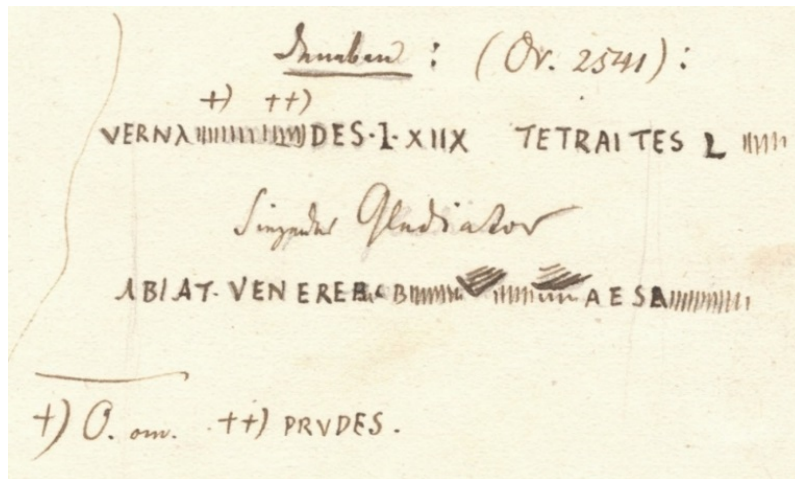 Daneben : (Or. 2541) :
+) ++)
VERNA DES·I·XIIX TETRAITES L
Gladiator
ABIAT·VENERE B AESA
+) O. om. ++) PRVDES.